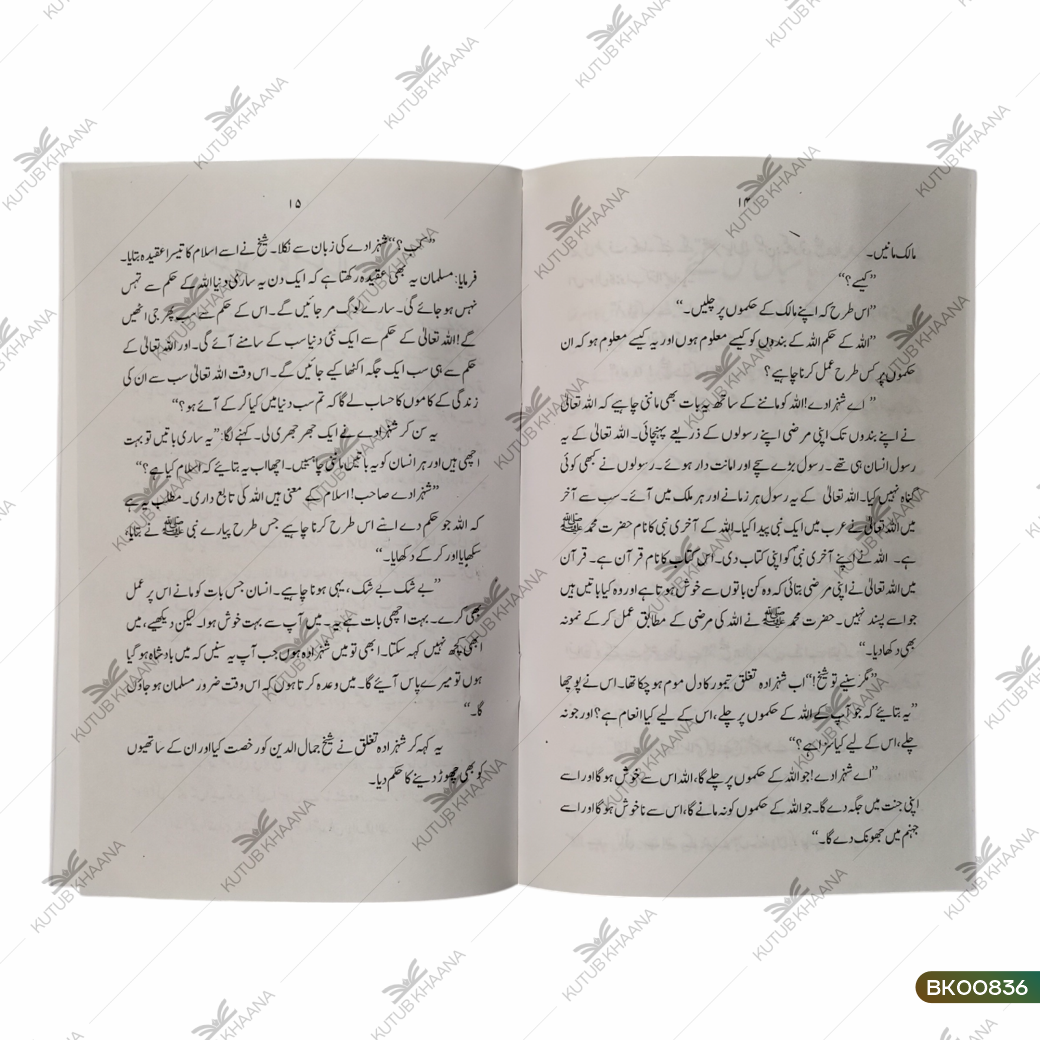 ۱۴
مالک مانیں۔
”کیسے؟“
”اس طرح کہ اپنے مالک کے حکموں پر چلیں۔“
”اللہ کے حکم اللہ کے بندوں کو کیسے معلوم ہوں اور یہ کیسے معلوم ہو کہ ان
حکموں پر کس طرح عمل کرنا چاہیے؟
” اے شہزادے! اللہ کو ماننے کے ساتھ یہ بات بھی ماننی چاہیے کہ اللہ تعالیٰ
نے اپنے بندوں تک اپنی مرضی اپنے رسولوں کے ذریعے پہنچائی۔ اللہ تعالیٰ کے یہ
رسول انسان ہی تھے۔ رسول بڑے سچے اور امانت دار ہوئے۔ رسولوں نے کبھی کوئی
گناہ نہیں کیا۔ اللہ تعالیٰ کے یہ رسول ہر زمانے اور ہر ملک میں آئے۔ سب سے آخر
میں اللہ تعالیٰ نے عرب میں ایک نبی پیدا کیا۔ اللہ کے آخری نبی کا نام حضرت محمد ﷺ
ہے۔ اللہ نے اپنے آخری نبی کو اپنی کتاب دی۔ اس کتاب کا نام قرآن ہے۔ قرآن
میں اللہ تعالیٰ نے اپنی مرضی بتائی کہ وہ کن باتوں سے خوش ہوتا ہے اور وہ کیا باتیں ہیں
جو اسے پسند نہیں۔ حضرت محمد ﷺ نے اللہ کی مرضی کے مطابق عمل کر کے نمونہ
بھی دکھا دیا۔“
”مگر سنیے تو شیخ!“ اب شہزادہ تغلق تیمور کا دل موم ہو چکا تھا۔ اس نے پوچھا
”یہ بتایئے کہ جو آپ کے اللہ کے حکموں پر چلے، اس کے لیے کیا انعام ہے؟ اور جو نہ
چلے، اس کے لیے کیا سزا ہے؟“
”اے شہزادے! جو اللہ کے حکموں پر چلے گا، اللہ اس سے خوش ہوگا اور اسے
اپنی جنت میں جگہ دے گا۔ جو اللہ کے حکموں کو نہ مانے گا، اس سے ناخوش ہوگا اور اسے
جہنم میں جھونک دے گا۔“
۱۵
”کب؟“ شہزادے کی زبان سے نکلا۔ شیخ نے اسے اسلام کا تیسرا عقیدہ بتایا۔
فرمایا: مسلمان یہ بھی عقیدہ رکھتا ہے کہ ایک دن یہ ساری دنیا اللہ کے حکم سے تہس
نہس ہو جائے گی۔ سارے لوگ مر جائیں گے۔ اس کے حکم سے سب پھر جی اٹھیں
گے! اللہ تعالیٰ کے حکم سے ایک نئی دنیا سب کے سامنے آئے گی۔ اور اللہ تعالیٰ کے
حکم سے ہی سب ایک جگہ اکٹھا کیے جائیں گے۔ اس وقت اللہ تعالیٰ سب سے ان کی
زندگی کے کاموں کا حساب لے گا کہ تم سب دنیا میں کیا کر کے آئے ہو؟“
یہ سن کر شہزادے نے ایک جھر جھری لی۔ کہنے لگا: ”یہ ساری باتیں تو بہت
اچھی ہیں اور ہر انسان کو یہ باتیں ماننی چاہئیں۔ اچھا اب یہ بتایئے کہ اسلام کیا ہے؟“
”شہزادے صاحب! اسلام کے معنی ہیں اللہ کی تابع داری۔ مطلب یہ ہے
کہ اللہ جو حکم دے اسے اس طرح کرنا چاہیے جس طرح پیارے نبی ﷺ نے بتایا،
سکھایا اور کر کے دکھایا۔“
”بے شک بے شک، یہی ہونا چاہیے۔ انسان جس بات کو مانے اس پر عمل
بھی کرے۔ بہت اچھی بات ہے یہ۔ میں آپ سے بہت خوش ہوا۔ لیکن دیکھیے، میں
ابھی کچھ نہیں کہہ سکتا۔ ابھی تو میں شہزادہ ہوں جب آپ یہ سنیں کہ میں بادشاہ ہو گیا
ہوں تو میرے پاس آیئے گا۔ میں وعدہ کرتا ہوں کہ اس وقت ضرور مسلمان ہو جاؤں
گا۔“
یہ کہہ کر شہزادہ تغلق نے شیخ جمال الدین کو رخصت کیا اور ان کے ساتھیوں
کو بھی چھوڑ دینے کا حکم دیا۔
KUTUB KHAANA
BK00836